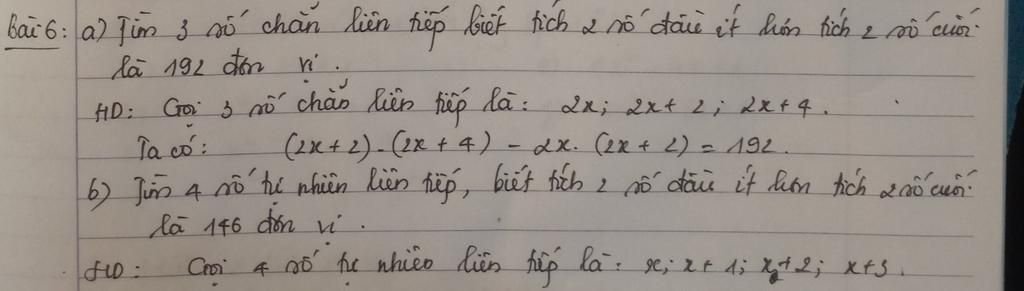 Bài 6: a) Tìm 3 số chẵn liên tiếp biết tích 2 số đầu ít hơn tích 2 số cuối
là 192 đơn vị.
HD: Gọi 3 số chẵn liên tiếp là: 2x; 2x+2; 2x+4.
Ta có: (2x+2).(2x+4) - 2x.(2x+2) = 192.
b) Tìm 4 số tự nhiên liên tiếp, biết tích 2 số đầu ít hơn tích 2 số cuối
là 146 đơn vị.
HD: Gọi 4 số tự nhiên liên tiếp là: x; x+1; x+2; x+3.